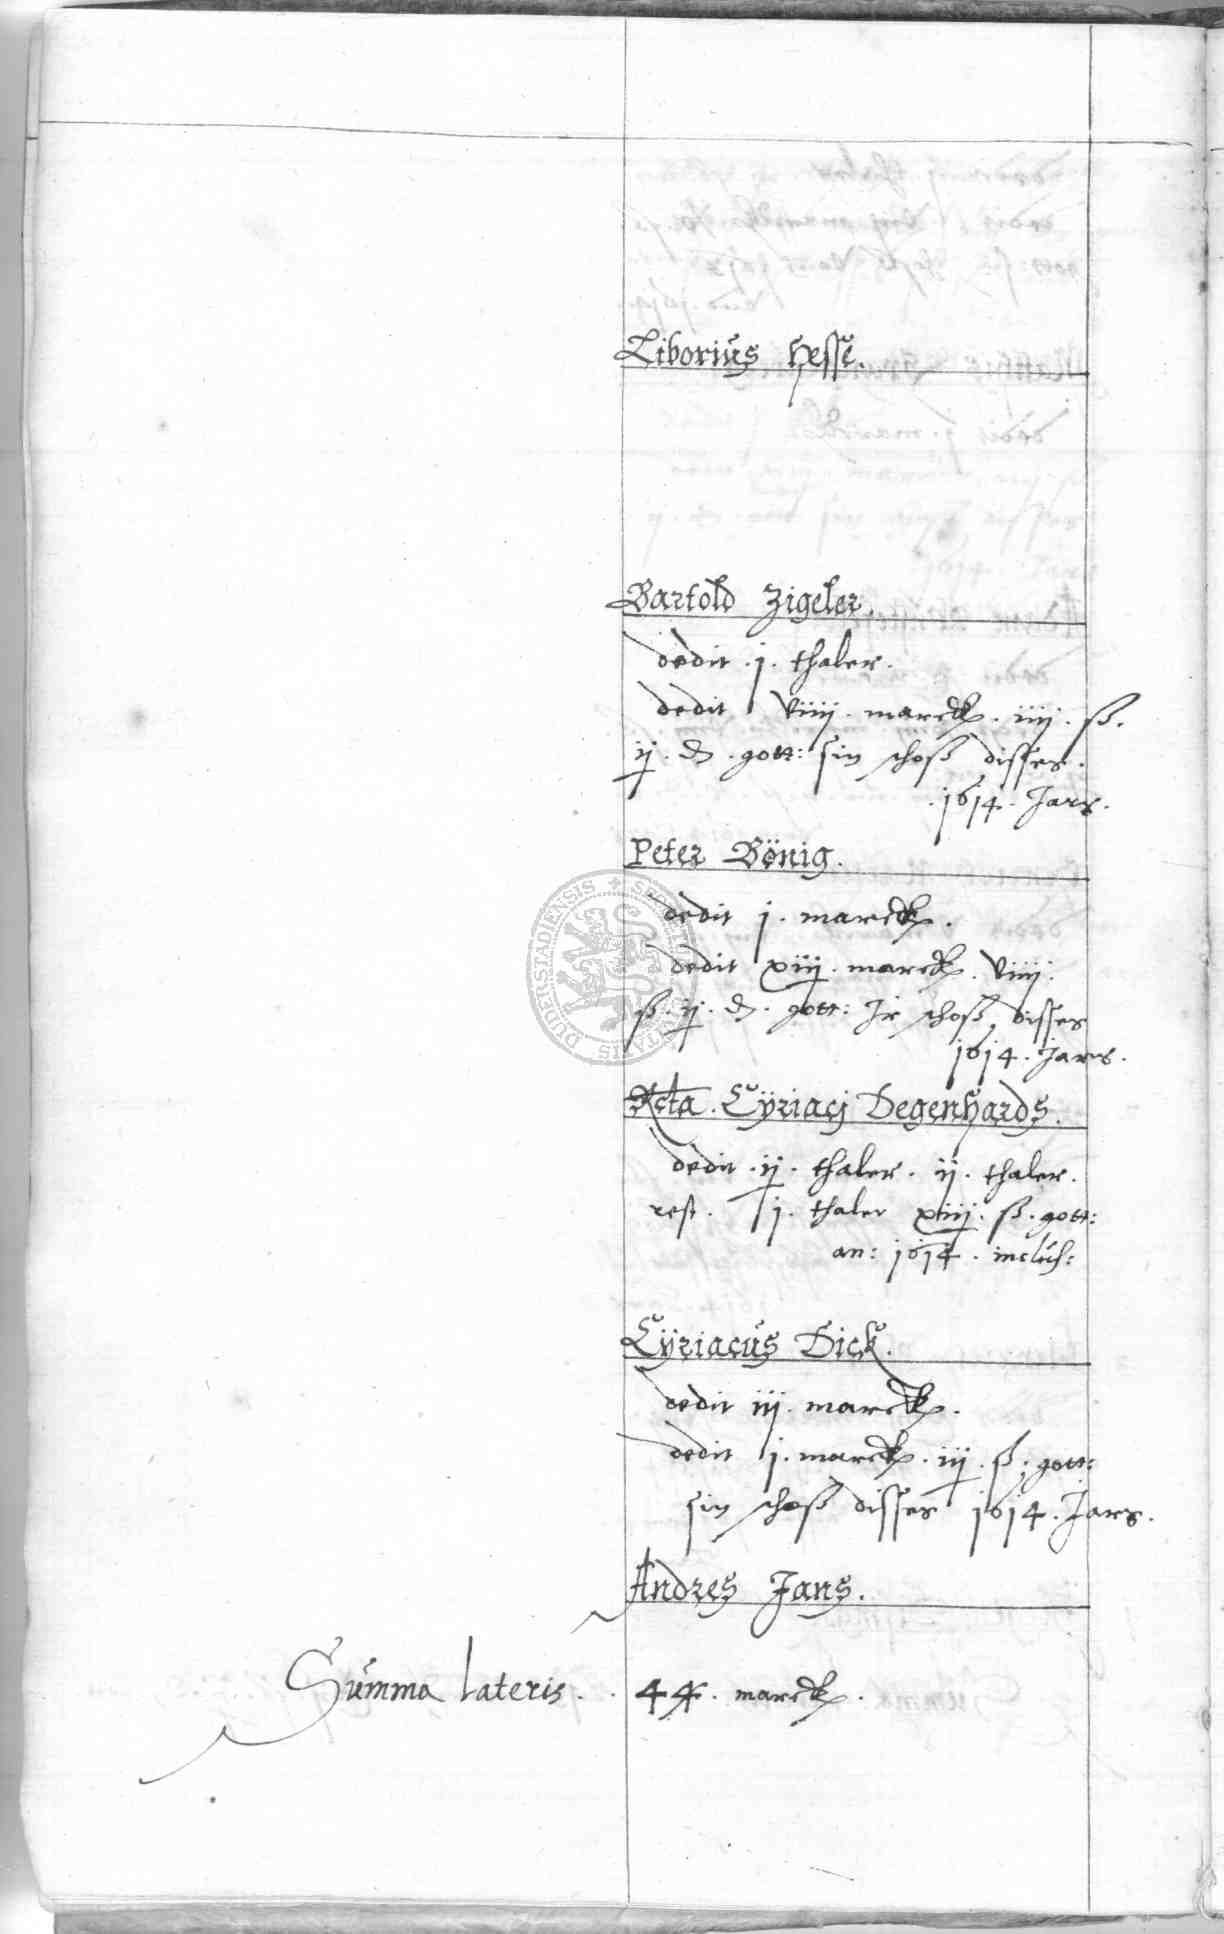 Liborius Hesse.
Bartold Zigeler.
dedit . j . thaler.
dedit viiij . marck . iiij . ß.
ij . d . gott: sin schoß disses .
. 1614 . Jars.
Peter Bönig.
dedit j . marck .
dedit xiij . marck . viiij .
ß . ij . d . gott: Ir schoß disses
1614 . Jars.
Relicta . Cÿriacj Degenhards.
dedit . ij . thaler . ij . thaler.
rest . j . thaler xiiij . ß . gott:
an: 1614 . inclus:
Cÿriacus Dick.
dedit iij . marck .
dedit j . marck . iij . ß . gott:
sin schoß disses 1614 . Jars.
Andres Jans.
Summa lateris . . 44 . marck .
SECRETUM CIVITATIS DUDERSTADIENSIS